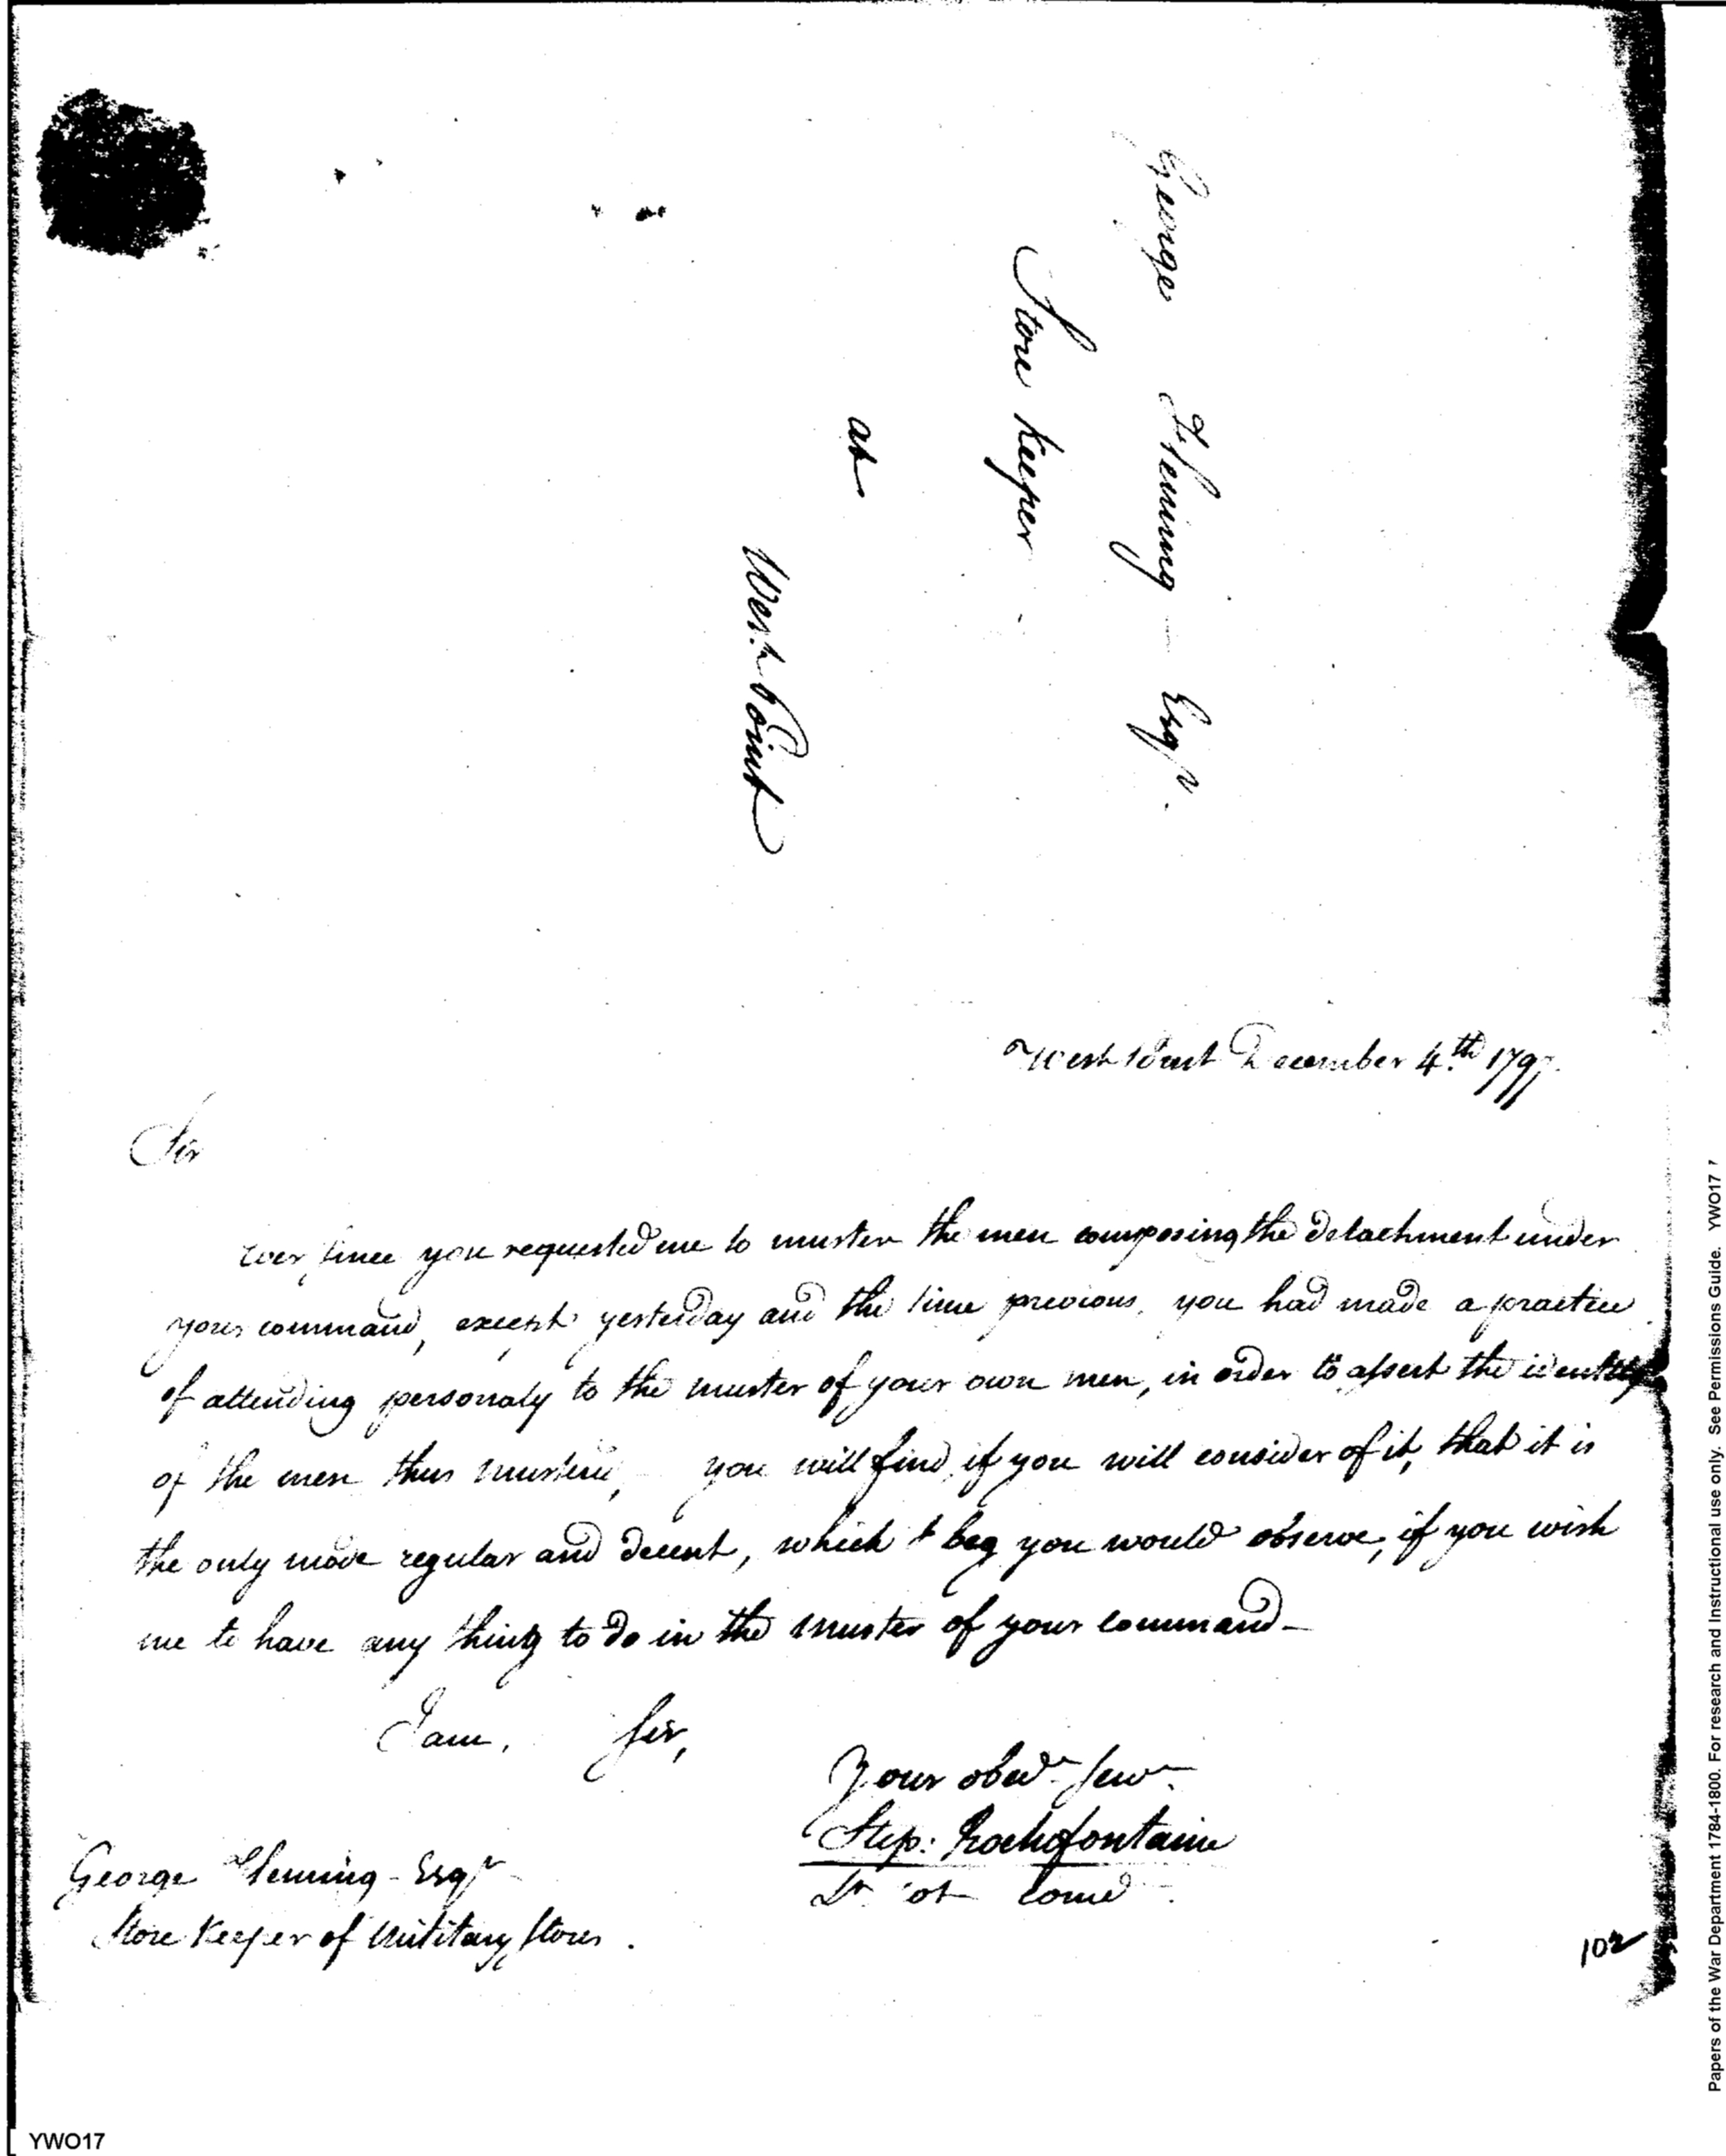 George Fleming - Esqr.
Store Keeper
at
West Point
West Point December 4th 1797.
Sir
ever since you requested me to muster the men composing the detachment under
your command, except yesterday and the time previous, you had made a practice
of attending personaly to the muster of your own men, in order to assert the identity
of the men thus mustered, you will find, if you will consider of it, that it is
the only mode regular and decent, which I beg you would observe, if you wish
me to have any thing to do in the muster of your command -
I am, Sir,
Your obedt. servt.
Step: Rochefontaine
Lt Cot Comd
George Fleming - Esqr
Store Keeper of Military Stores.
102
YWO17
Papers of the War Department 1784-1800. For research and Instructional use only. See Permissions Guide. YWO17